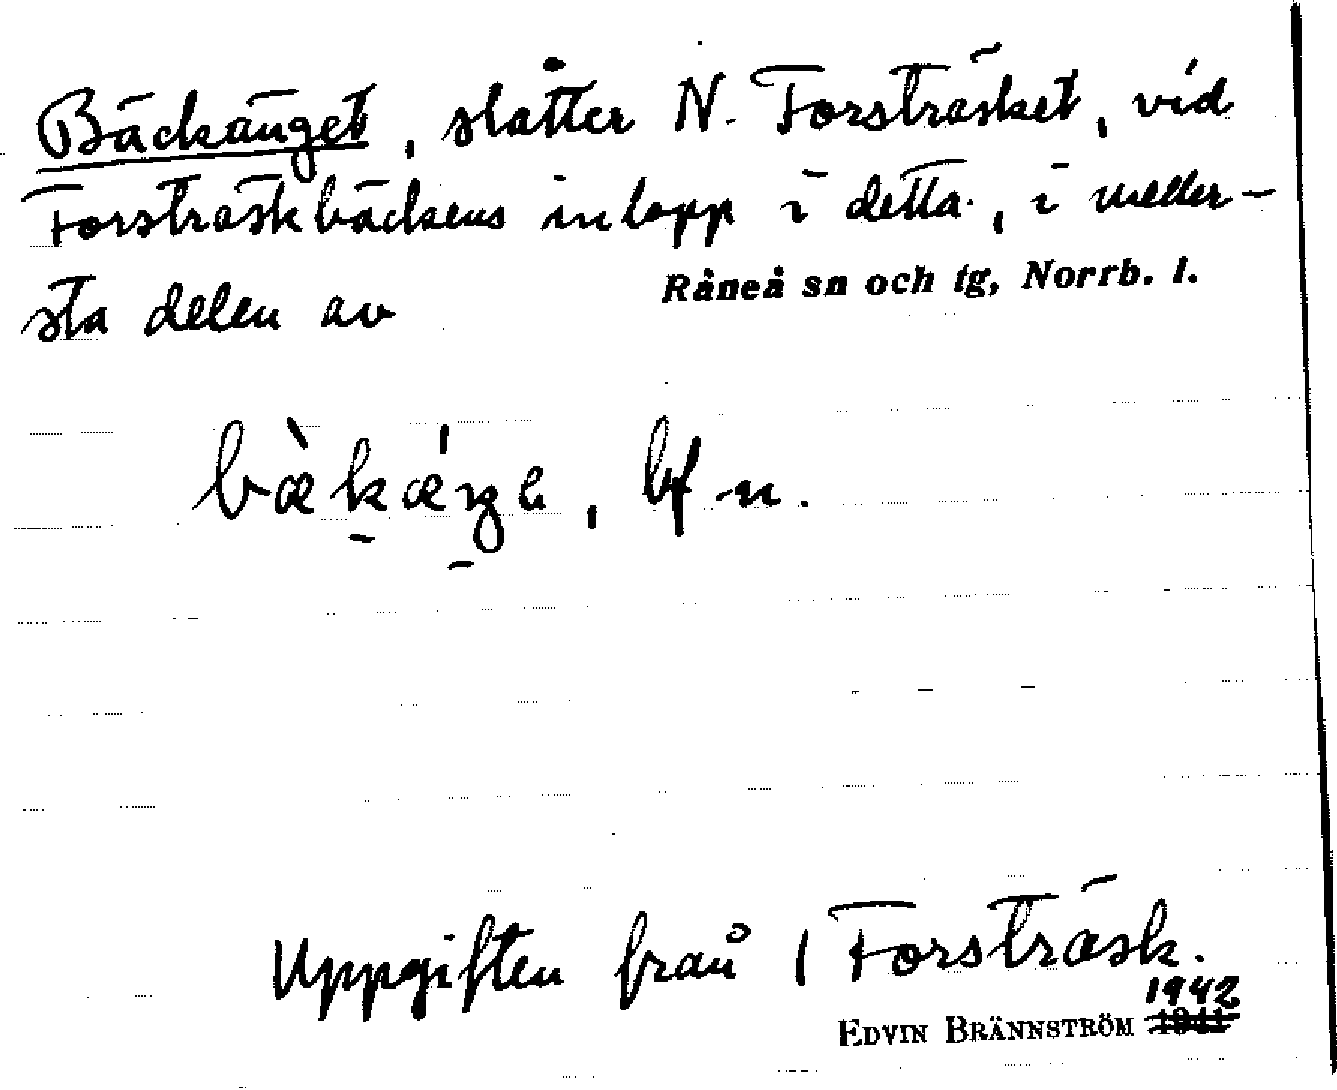 Bäckänget, slåtter N. Forsträsket, vid
Forsträskbäckens inlopp i detta, i neder-
sta delen av Råneå sn och tg, Norrb. l.
bæ̀kǽŋe, bf n.
Uppgiften från 1 Forsträsk.
1942
EDVIN BRÄNNSTRÖM 1941